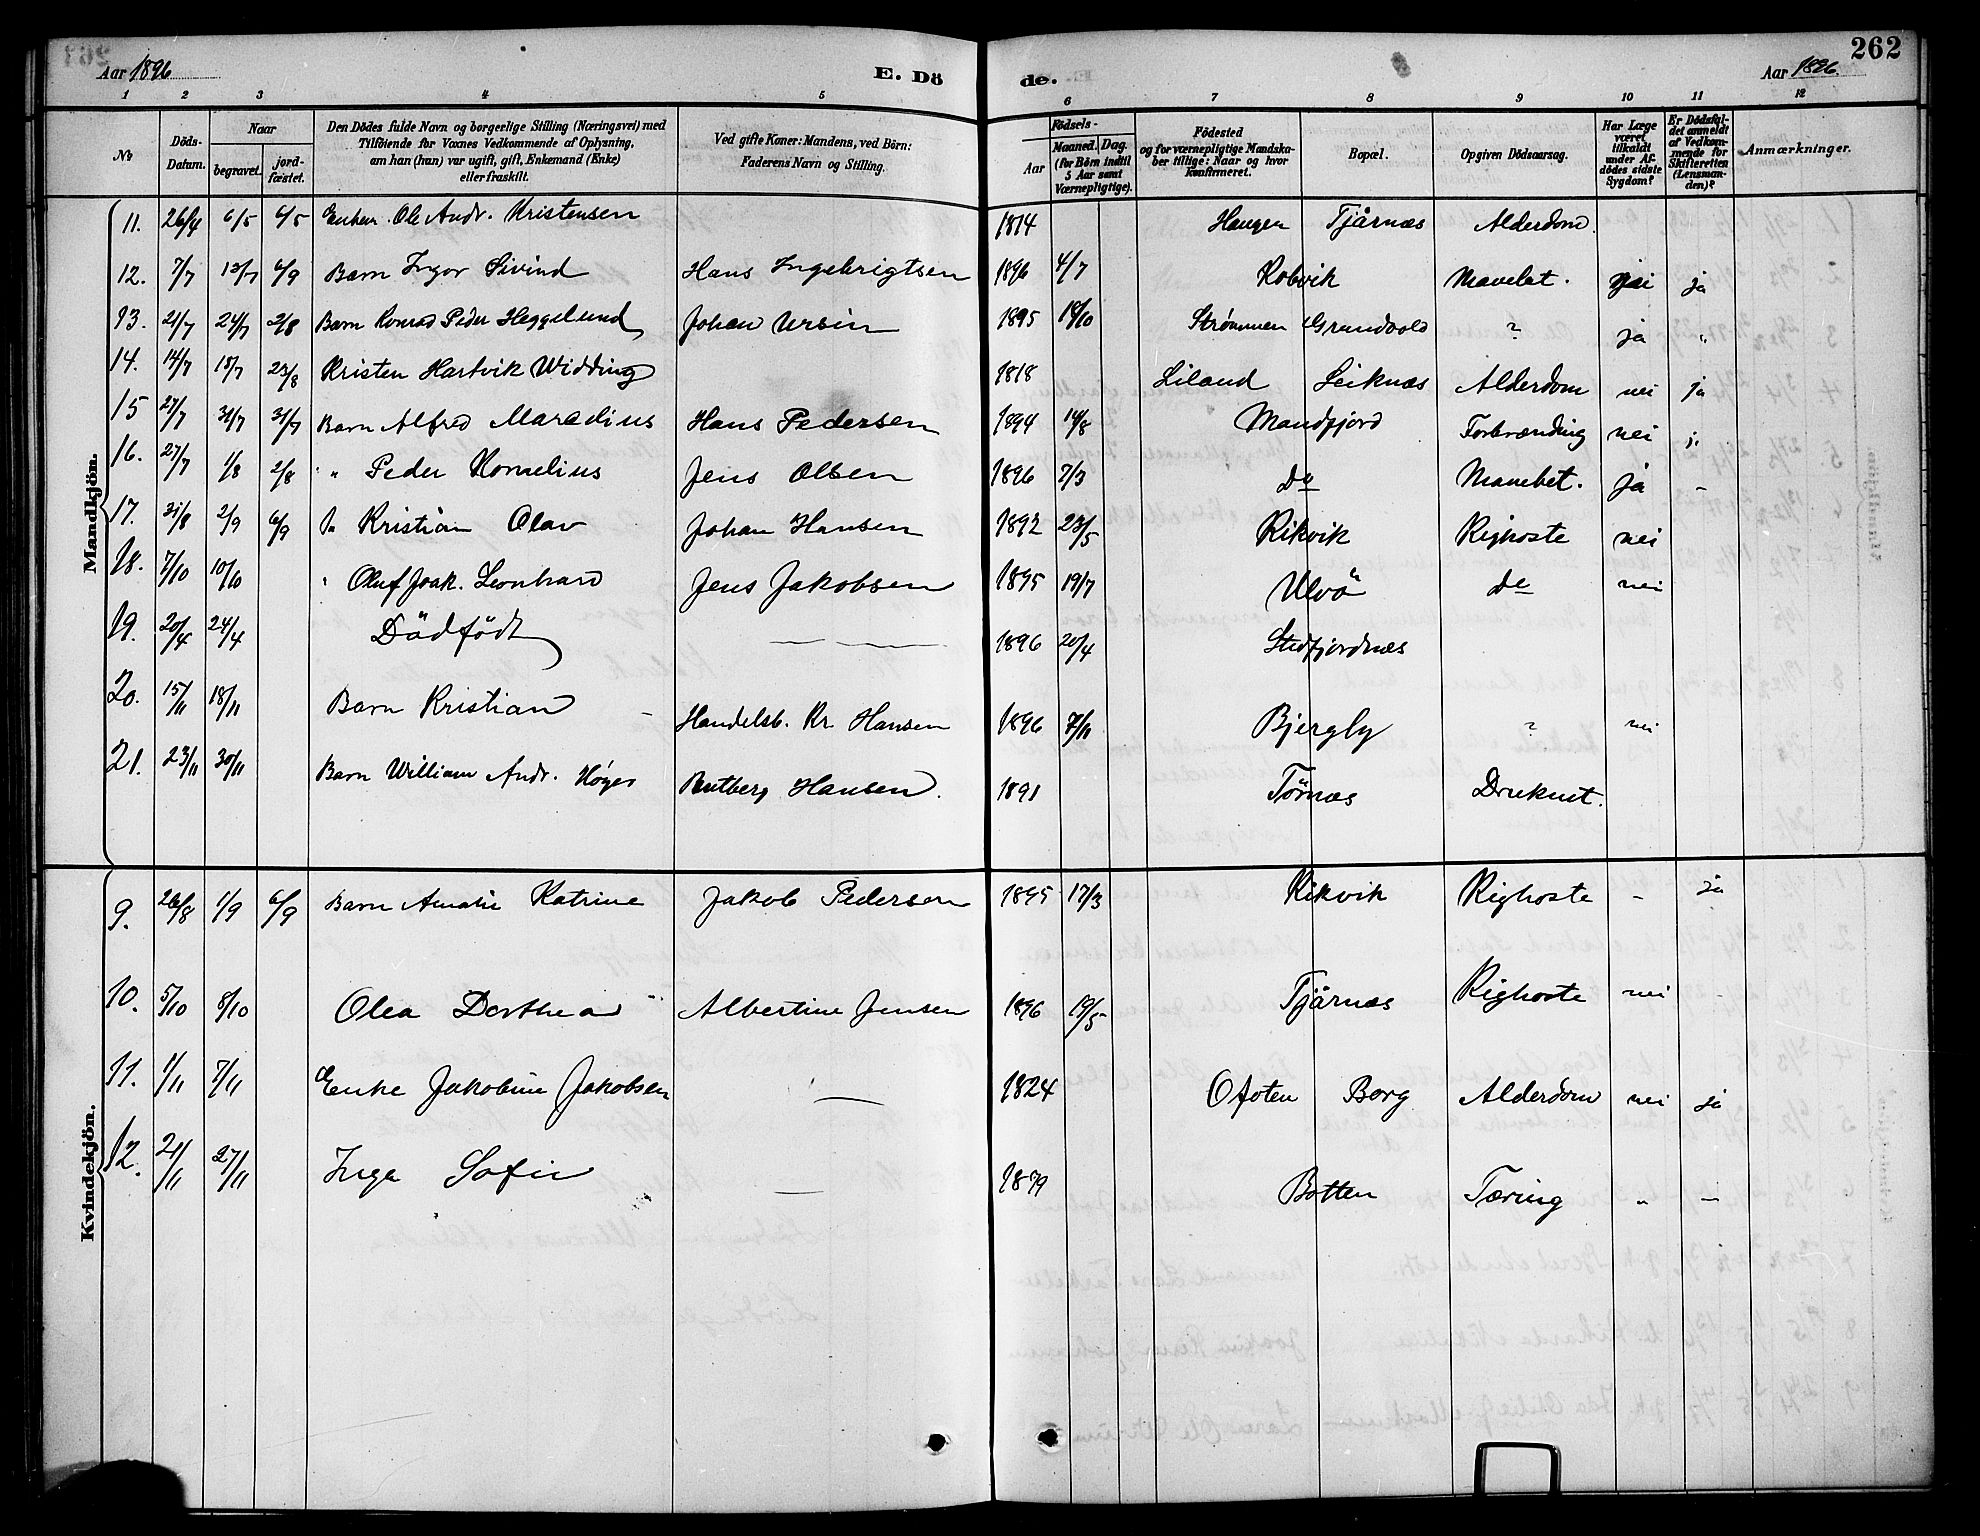 Aar 1896
E. Dö
de.
Aar 1896.
262
1 2 3 4 5 6 7 8 9 10 11 12
No
Döds-Datum.
Naar
begravet.
jord-fæstet.
Den Dödes fulde Navn og borgerlige Stilling (Næringsvei) med
Tilföiende for Voxnes Vedkommende af Oplysning,
om han (hun) var ugift, gift, Enkemand (Enke)
eller fraskilt.
Ved gifte Koner: Mandens, ved Börn:
Faderens Navn og Stilling.
Födsels-
Aar
Maaned. Dag.
(for Börn indtil
5 Aar samt
Værnepligtige).
Födested
og for værnepligtige Mandska-
ber tillige: Naar og hvor
konfirmeret.
Bopæl.
Opgiven Dödsaarsag.
Har Læge
været
tilkaldt
under Af-
dödes sidste
Sygdom?
Er Dödsfal-
det anmeldt
af Vedkom-
mende for
Skifteretten
(Lensman-
den)?
Anmærkninger.
Mandkjön.
11. 26/4 6/5 6/5 Enkem. Ole Andr. Kristensen 1814 Haugen Tjårnæs Alderdom.
12. 7/7 13/7 6/9 Barn Ingor Eivind Hans Ingebrigtsen 1896 4/7 Kobvik Mavebet. nei ja
13. 21/7 24/7 2/8 Barn Konrad Peder Heggelund Johan Ursin 1895 18/10 Strømmen Grundvold ? ja "
14. 14/7 18/7 23/8 Kristen Hartvik Widding 1818 Liland Leiknæs Alderdom nei ja
15 27/7 31/7 31/7 Barn Alfred Maredius Hans Pedersen 1894 14/8 Mandfjord Forbrænding nei j.
16. 27/7 1/8 2/8 " Peder Kornelius Jens Olsen 1896 7/3 Do Mavebet. ja -
17. 31/8 2/9 6/9 Kristian Olav Johan Hansen 1892 23/5 Kikvik Kighoste nei
18. 7/10 10/10 " Oluf Joak. Leonhard Jens Jakobsen 1895 19/7 Ulvö do nei
19. 20/4 24/4 Dödfödt — 1896 20/4 Stedfjordnæs
20. 15/11 18/11 Barn Kristian - Handelsb. Kr. Hansen 1896 7/11 Bjergly ? nei
21. 23/11 30/11 Barn William Andr. Høyer Rutberg Hansen. 1891 Törnæs Druknet.
Kvindekjön.
9. 26/8 1/9 6/9 Barn Amalie Katrine Jakob Pedersen 1895 17/3 Kikvik Kighoste - ja
10. 5/10 8/10 Olea Dorthea Albertine Jensen 1896 19/5 Tjårnæs Kighoste nei
11. 1/11 7/11 Enke Jakobine Jakobsen — 1824 Ofoten Borg Alderdom nei ja
12. 21/11 27/11 Inga Sofie — 1879 Botten Tæring " —